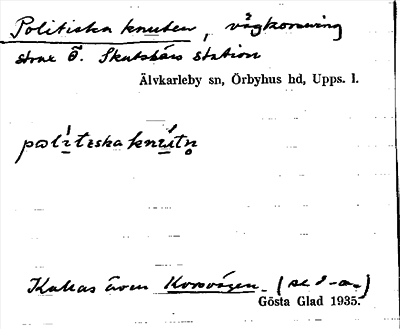 Politiska knuten, vägkorsning
strax Ö. Skutskärs station
Älvkarleby sn, Örbyhus hd, Upps. l.
Kallas även Korsvägen (se d.o.)
Gösta Glad 1935.